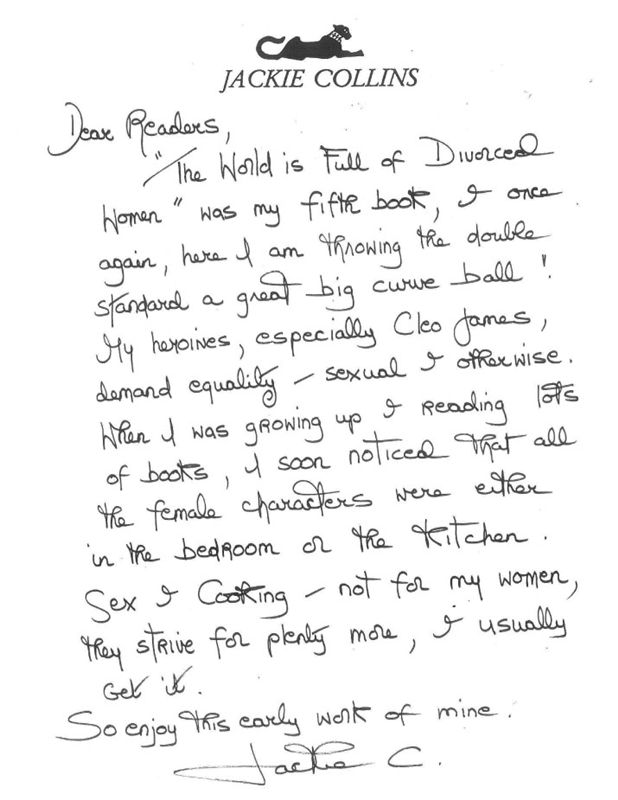 JACKIE COLLINS
Dear Readers,
"The World is Full of Divorced
Women" was my fifth book, & once
again, here I am throwing the double
standard a great big curve ball!
My heroines, especially Cleo James,
demand equality – sexual & otherwise.
When I was growing up & reading lots
of books, I soon noticed that all
the female characters were either
in the bedroom or the kitchen.
Sex & Cooking – not for my women,
they strive for plenty more, & usually
get it.
So enjoy this early work of mine.
Jackie C.